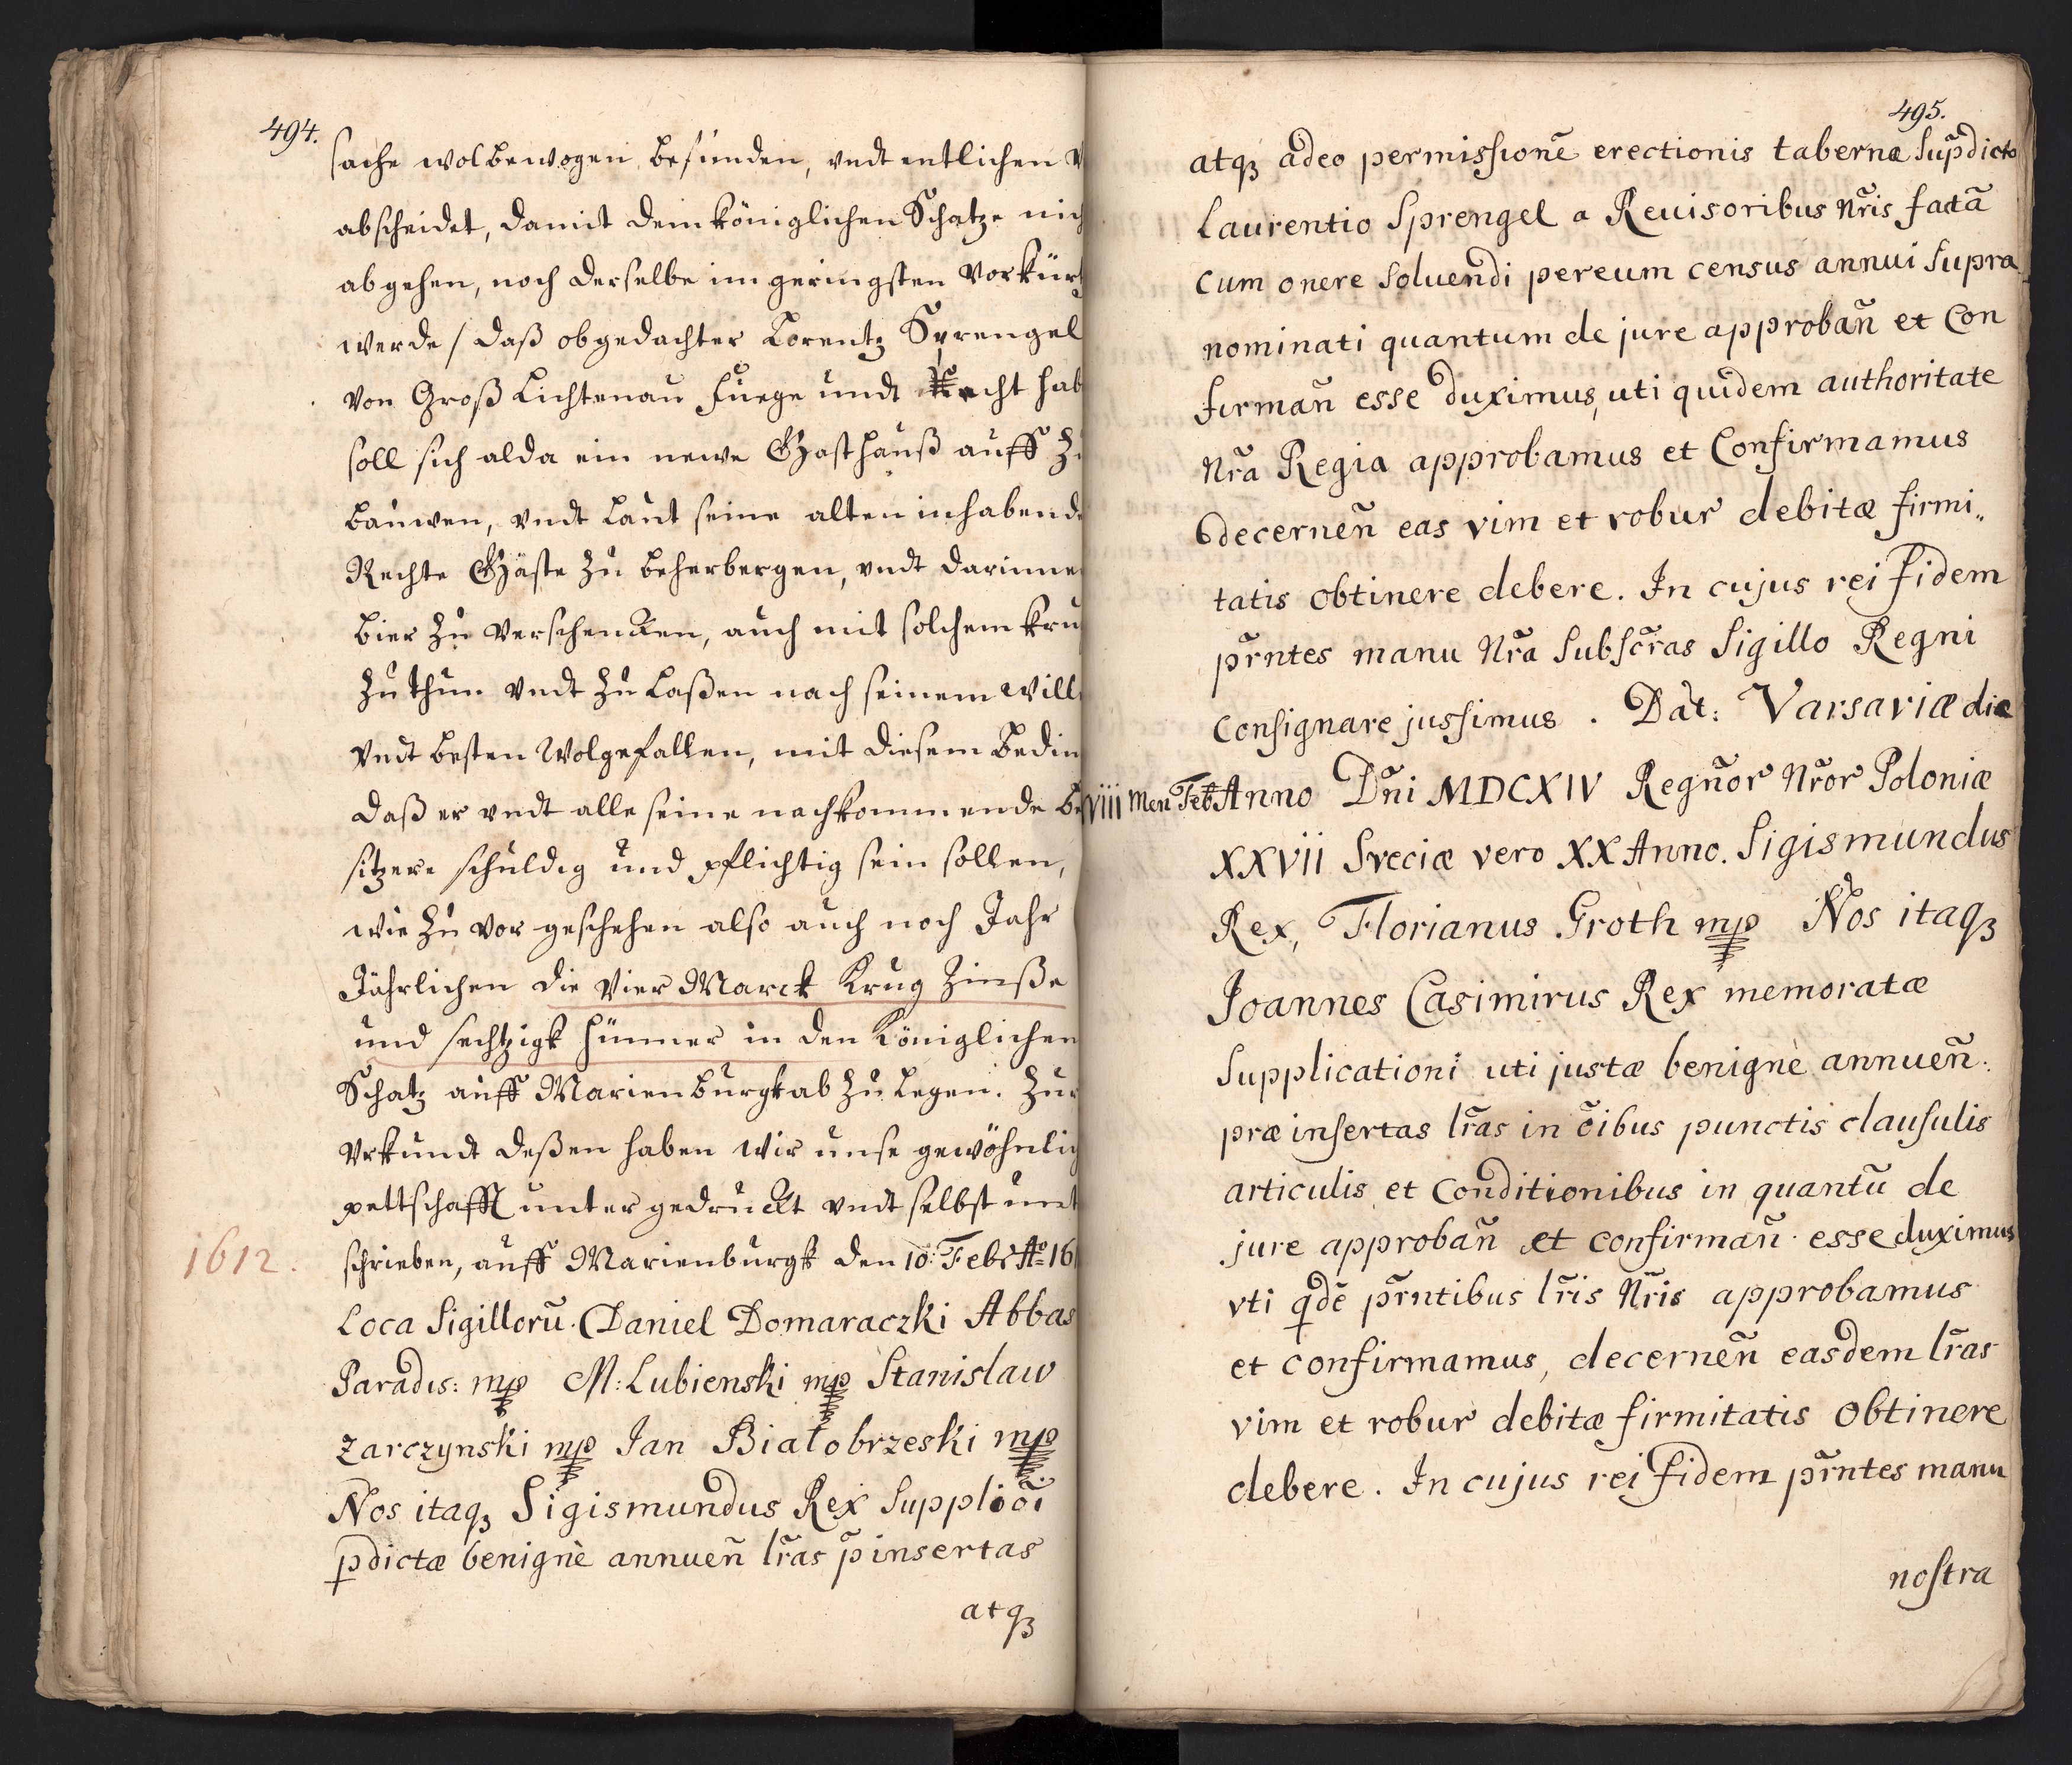 494.
sache wolbewogen, befunden, vndt entlichen
abscheidet, damit dem königlichen Schatze nich
abgehen, noch derselbe im geringsten Vorkürt
werde / daß obgedachter Lorentz Sprengel
Von Groß Lichtenau fuege undt Recht hab
soll sich alda ein newe Gasthauß auff Zu
bauwen, vndt Laut seine alten inhabende
Rechte Gäste Zu beherbergen, vndt darinne
bier Zu Verschencken, auch mit solchem kru
Zu thun vndt Zu Laßen nach seinem will
Vndt besten Wolgefallen, mit diesem bedin
daß er vndt alle seine nachkommende be
sitzere schuldig und pflichtig sein sollen,
wie Zu Vor geschehen also auch noch Jahr
Jährlichen die Vier Marck Krug Zinße
und sechtzigk hünner in den Königlichen
Schatz auff Marienburgk ab Zu Legen. Zur
Vrkundt deßen haben wir unse gewöhnlich
pettschafft unter gedruckt vndt selbst unt
1612.
schrieben, auff Marienburgk den 10: Febr Ao 161
Loca Sigillorũ. Daniel Domaraczki Abbas
Paradis: mp M: Lubienski mp Stanislaw
Zarczynski mp Jan Białobrzeski mp
Nos itaqꝫ Sigismundus Rex Supplicõi
p̱dictæ benignè annueñ lr̃as p̃insertas
atqꝫ
495.
atqꝫ adeo permissionẽ erectionis tabernæ Sup̃dicto
Laurentio Sprengel a Reuisoribus Nr̃is factã
cum onere Soluendi per eum census annui Supra
nominati quantum de jure approbañ et Con
firmañ esse duximus, uti quidem authoritate
Nr̃a Regia approbamus et Confirmamus
decerneñ eas vim et robur debitæ firmi„
tatis obtinere debere. In cujus rei fidem
pr̃ntes manu Nr̃a Subscr̃as Sigillo Regni
Consignare jussimus. Dat: Varsaviæ die
VIII Men Feb Anno Dñi MDCXIV Regñor Nr̃or Poloniæ
XXVII Sveciæ vero XX Anno. Sigismundus
Rex, Florianus Groth mp Nos itaqꝫ
Joannes Casimirus Rex memoratæ
Supplicationi uti justæ benignè annueñ.
præ insertas lr̃as in õibus punctis clausulis
articulis et Conditionibus in quantũ de
jure approbañ et confirmañ. esse duximus
vti qdẽ pr̃ntibus lr̃is Nr̃is approbamus
et confirmamus, decerneñ easdem lr̃as
vim et robur debitæ firmitatis Obtinere
debere. In cujus rei fidem pr̃ntes manu
nostra